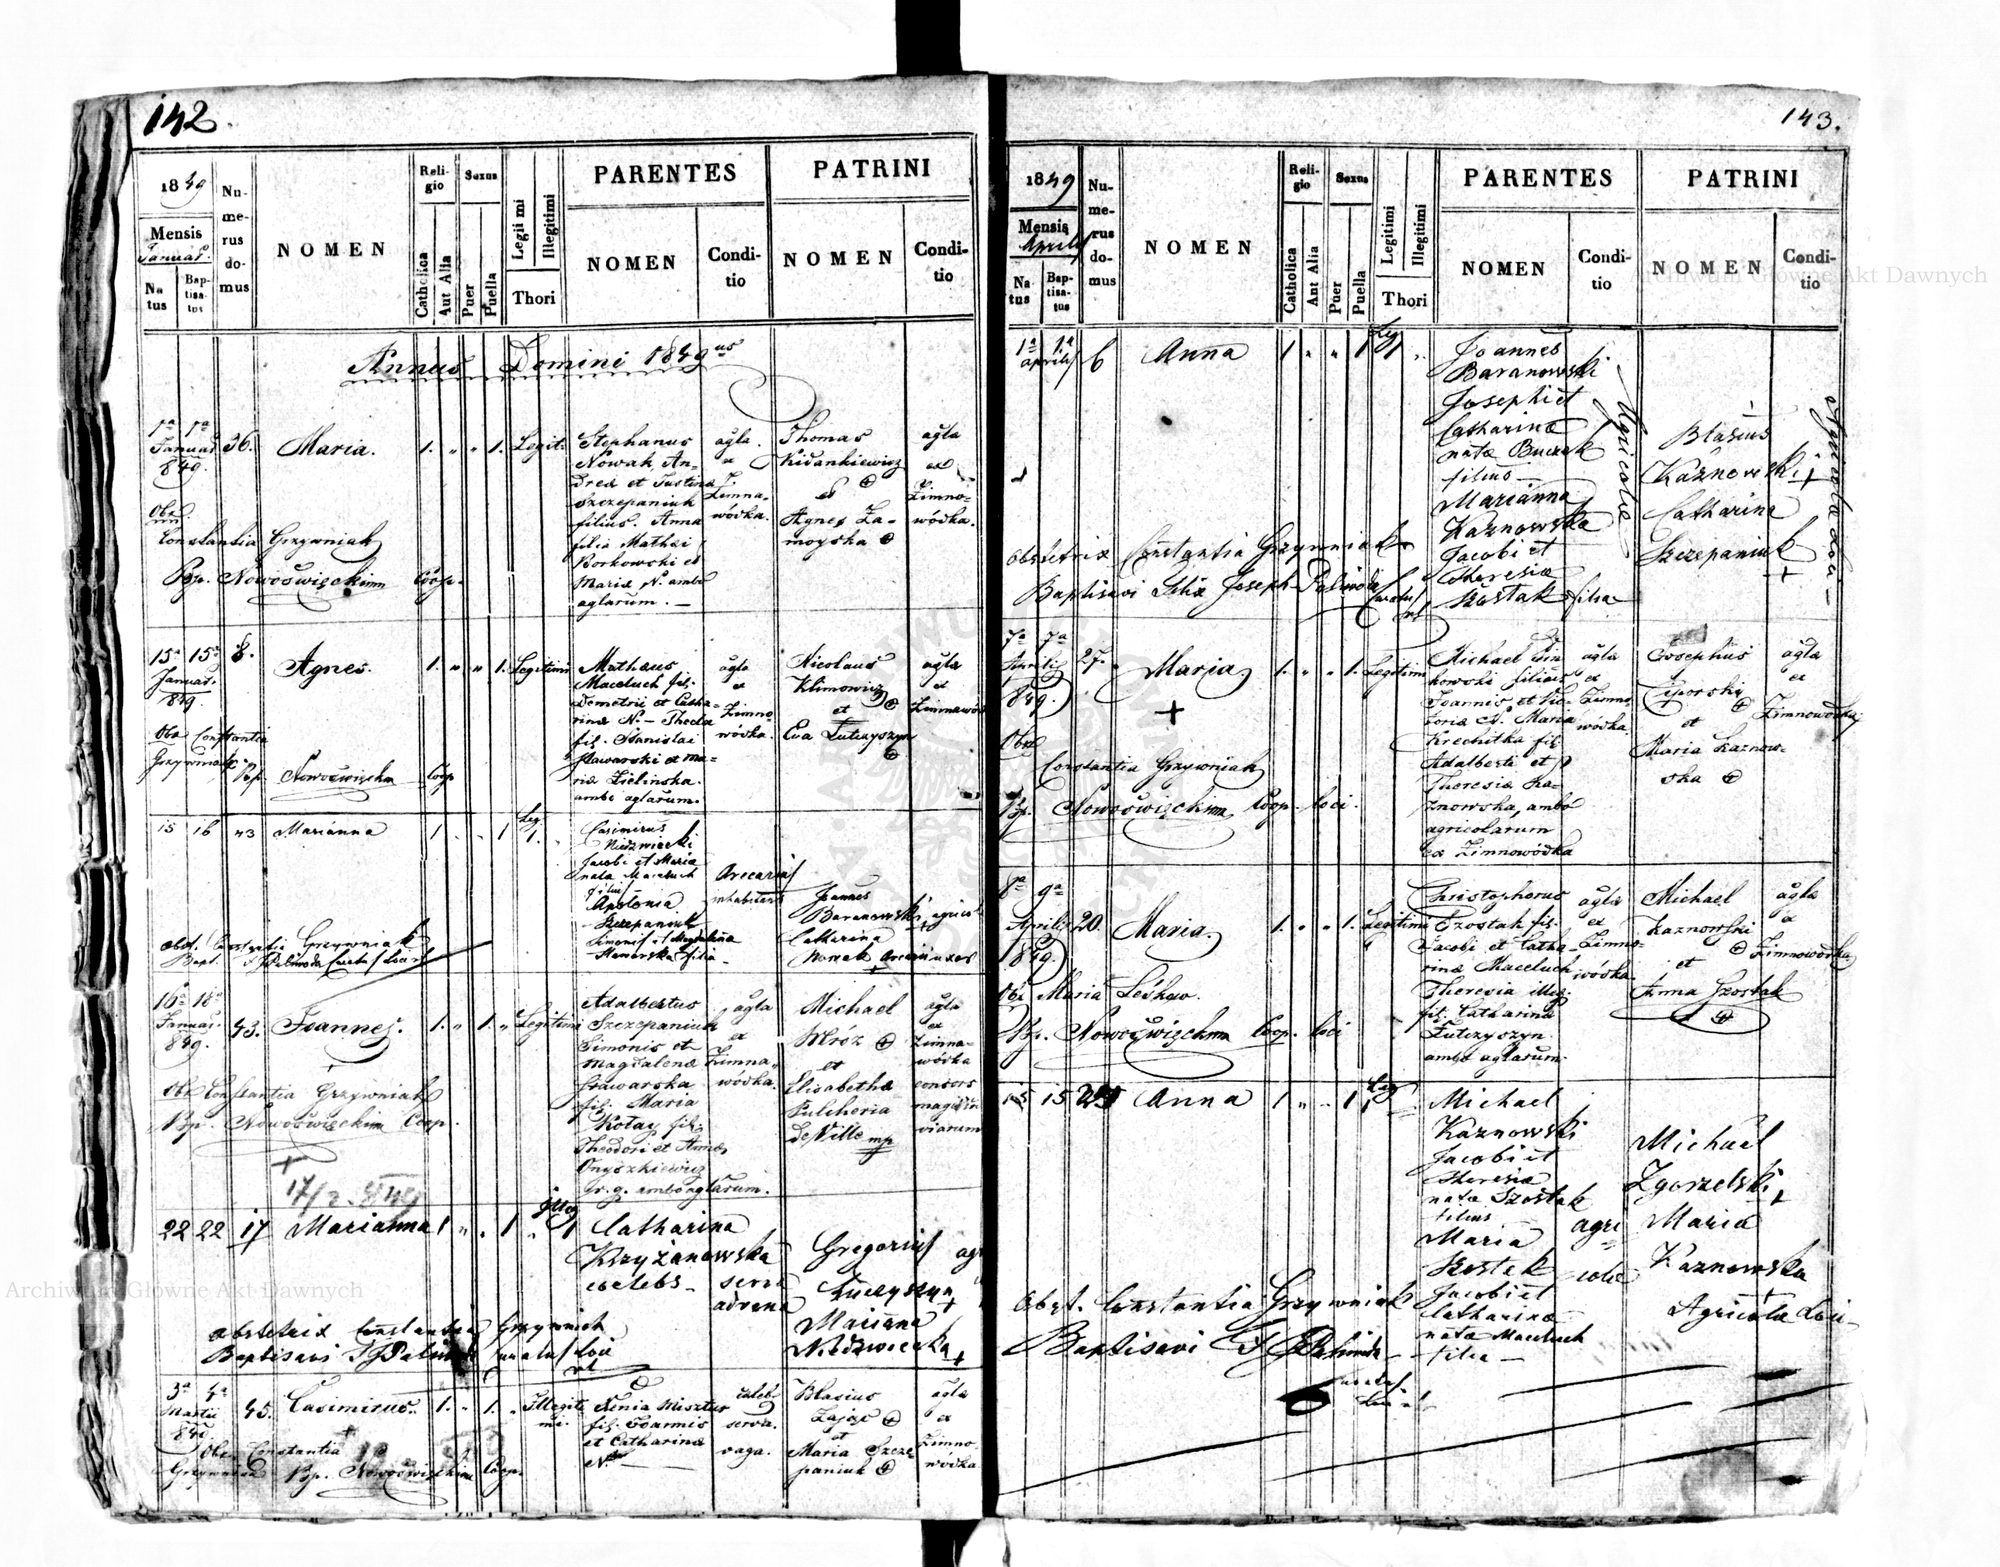 142.
1849
Mensis
Januar.
Na
tus
Bap-
tisa-
tus
Nu-
me-
rus
do-
mus
NOMEN
Reli-
gio
Catholica
Aut Alia
Sexus
Puer
Puella
Legitimi
Illegitimi
Thori
PARENTES
NOMEN
Condi-
tio
PATRINI
NOMEN
Condi-
tio
Annus Domini 1849us
1a 1a
Januar.
849.
36.
Maria.
1. " " 1.
Legit.
Stephanus
Nowak, An-
drea et Justina
Szczepaniuk
filius. Anna
filia Mathei
Borkowski et
Maria N. ambo
aglarum. —
agla
ex
Zimno-
wódka.
Thomas
et
Agnes Za-
moyska
agla
ex
Zimno-
wódka.
Obs.
Constantia Grzywniak
Bp. Nowoświęckimm Coop.
15a 15a
Januar.
849.
8.
Agnes.
1. " " 1.
Legitimi
Matheus
Maceluch fil.
Demetrii et Catha-
rina N. — Thecla
fil. Stanislai
Sławarski et Ma-
ria Zielinska.
ambo aglarum.
agla
ex
Zimno-
wódka.
Nicolaus
Klimowicz
et
Eva Lutczyszyn
agla
ex
Zimnowod
Obs Constantia
Grzywniak Bp. Nowoświęckim Coop
15 16 43 Marianna 1 . . 1
Leg
1.
Casimirus
Niedzwiecki
Jacobi et Maria
nata Maceluch
filius
Apolonia
Szczepaniuk
Simonis et Magdalena
Sławarska filia
Joannes
Baranowski
Catharina
Nowak
obst. Constantia Grzywniak
Bapt. Palinoda
16a 18a
Januar.
849.
43.
Joannes.
1. " 1. "
Legitimi
Adalbertus
Szczepaniuk
Simonis et
Magdalena
Sławarska
fil. Maria
Kotay fil.
Theodori et Anna
Onyszkiewicz
gr. g. ambo aglarum.
agla
ex
Zimno-
wódka.
Michael
Mróz
et
Elisabetha
Pulcheria
deVille mp
agla
ex
Zimno-
wódka
consors
Obs Constantia Grzywniak
Bp. Nowoświęckim Coop.
17/2 849
22 22 17 Marianna 1 " . 1
Illeg
1
Catharina
Krzyżanowska
coelebs
serva
advena
Gregorius
Marianna
Niedzwiecka
obstetrix Constantia Grzywniak
Baptisavi Curatus loci
3a 4a
Martii
849.
45.
Casimirus.
1. " 1. "
Illegiti
mi.
Xenia Misztur
fil. Joannis
et Catharina
N.
serva
vaga.
Blasius
Zając
et
Maria Szcze-
paniuk
agla
ex
Zimno-
wódka
Obs. Constantia
Grzywniak Bp. Nowoświęckim Coop.
143.
1849
Mensis
Aprilis
Na-
tus
Bap-
tisa-
tus
Nu-
me-
rus
do-
mus
NOMEN
Reli-
gio
Catholica
Aut Alia
Sexus
Puer
Puella
Legitimi
Illegitimi
Thori
PARENTES
NOMEN
Condi-
tio
PATRINI
NOMEN
Condi-
tio
1a 1a
aprilis
6
Anna
1 " " 1
Leg
Joannes
Baranowski
Josephi et
Catharina
nata Buczek
filius
Marianna
Kaznowska
Jacobi et
Theresia
Szostak filia
Agricolae
Blasius
Kaznowski +
Catharina
Szczepaniuk
+
obstetrix Constantia Grzywniak
Baptisavi Felix Joseph Palinoda
7a 7a
Aprilis
849.
27.
Maria.
+
1. " " 1.
Legitimi
Michael
filius
Joannis et Vic-
toria N. Maria
Krechitka fil.
Adalberti et
Theresia Ka-
znowska, ambo
agricolarum
ex Zimnowódka
agla
ex
Zimno-
wódka.
Josephus
et
Maria Kaznow-
ska
agla
ex
Zimnowódka
Obs
Constantia Grzywniak
Bp. Nowoświęckimm Coop. loci.
8a 9a
Aprilis
849.
20.
Maria.
1. " " 1.
Legitimi
Christophorus
Szostak fil.
Jacobi et Catha-
rina Maceluch
Theresia illeg.
fil. Catharina
Lutczyszyn
ambo aglarum.
agla
ex
Zimno-
wódka.
Michael
Kaznowski
et
Anna Szostak
agla
ex
Zimnowódka
Obs Maria Leśków.
Bp. Nowoświęckimm Coop. loci
15 15 Anna 1 " . 1
Leg
Michael
Kaznowski
Jacobi et
Theresia
nata Szostak
filius
Maria
Szostak
Jacobi et
Catharina
nata Maceluch
filia —
agri
colae
Michael
Zgorzelski
+
Maria
Kaznowska
+
Agricola Loci
Obst. Constantia Grzywniak
Baptisavi Palinoda
Archiwum Główne Akt Dawnych
Archiwum Główne Akt Dawnych